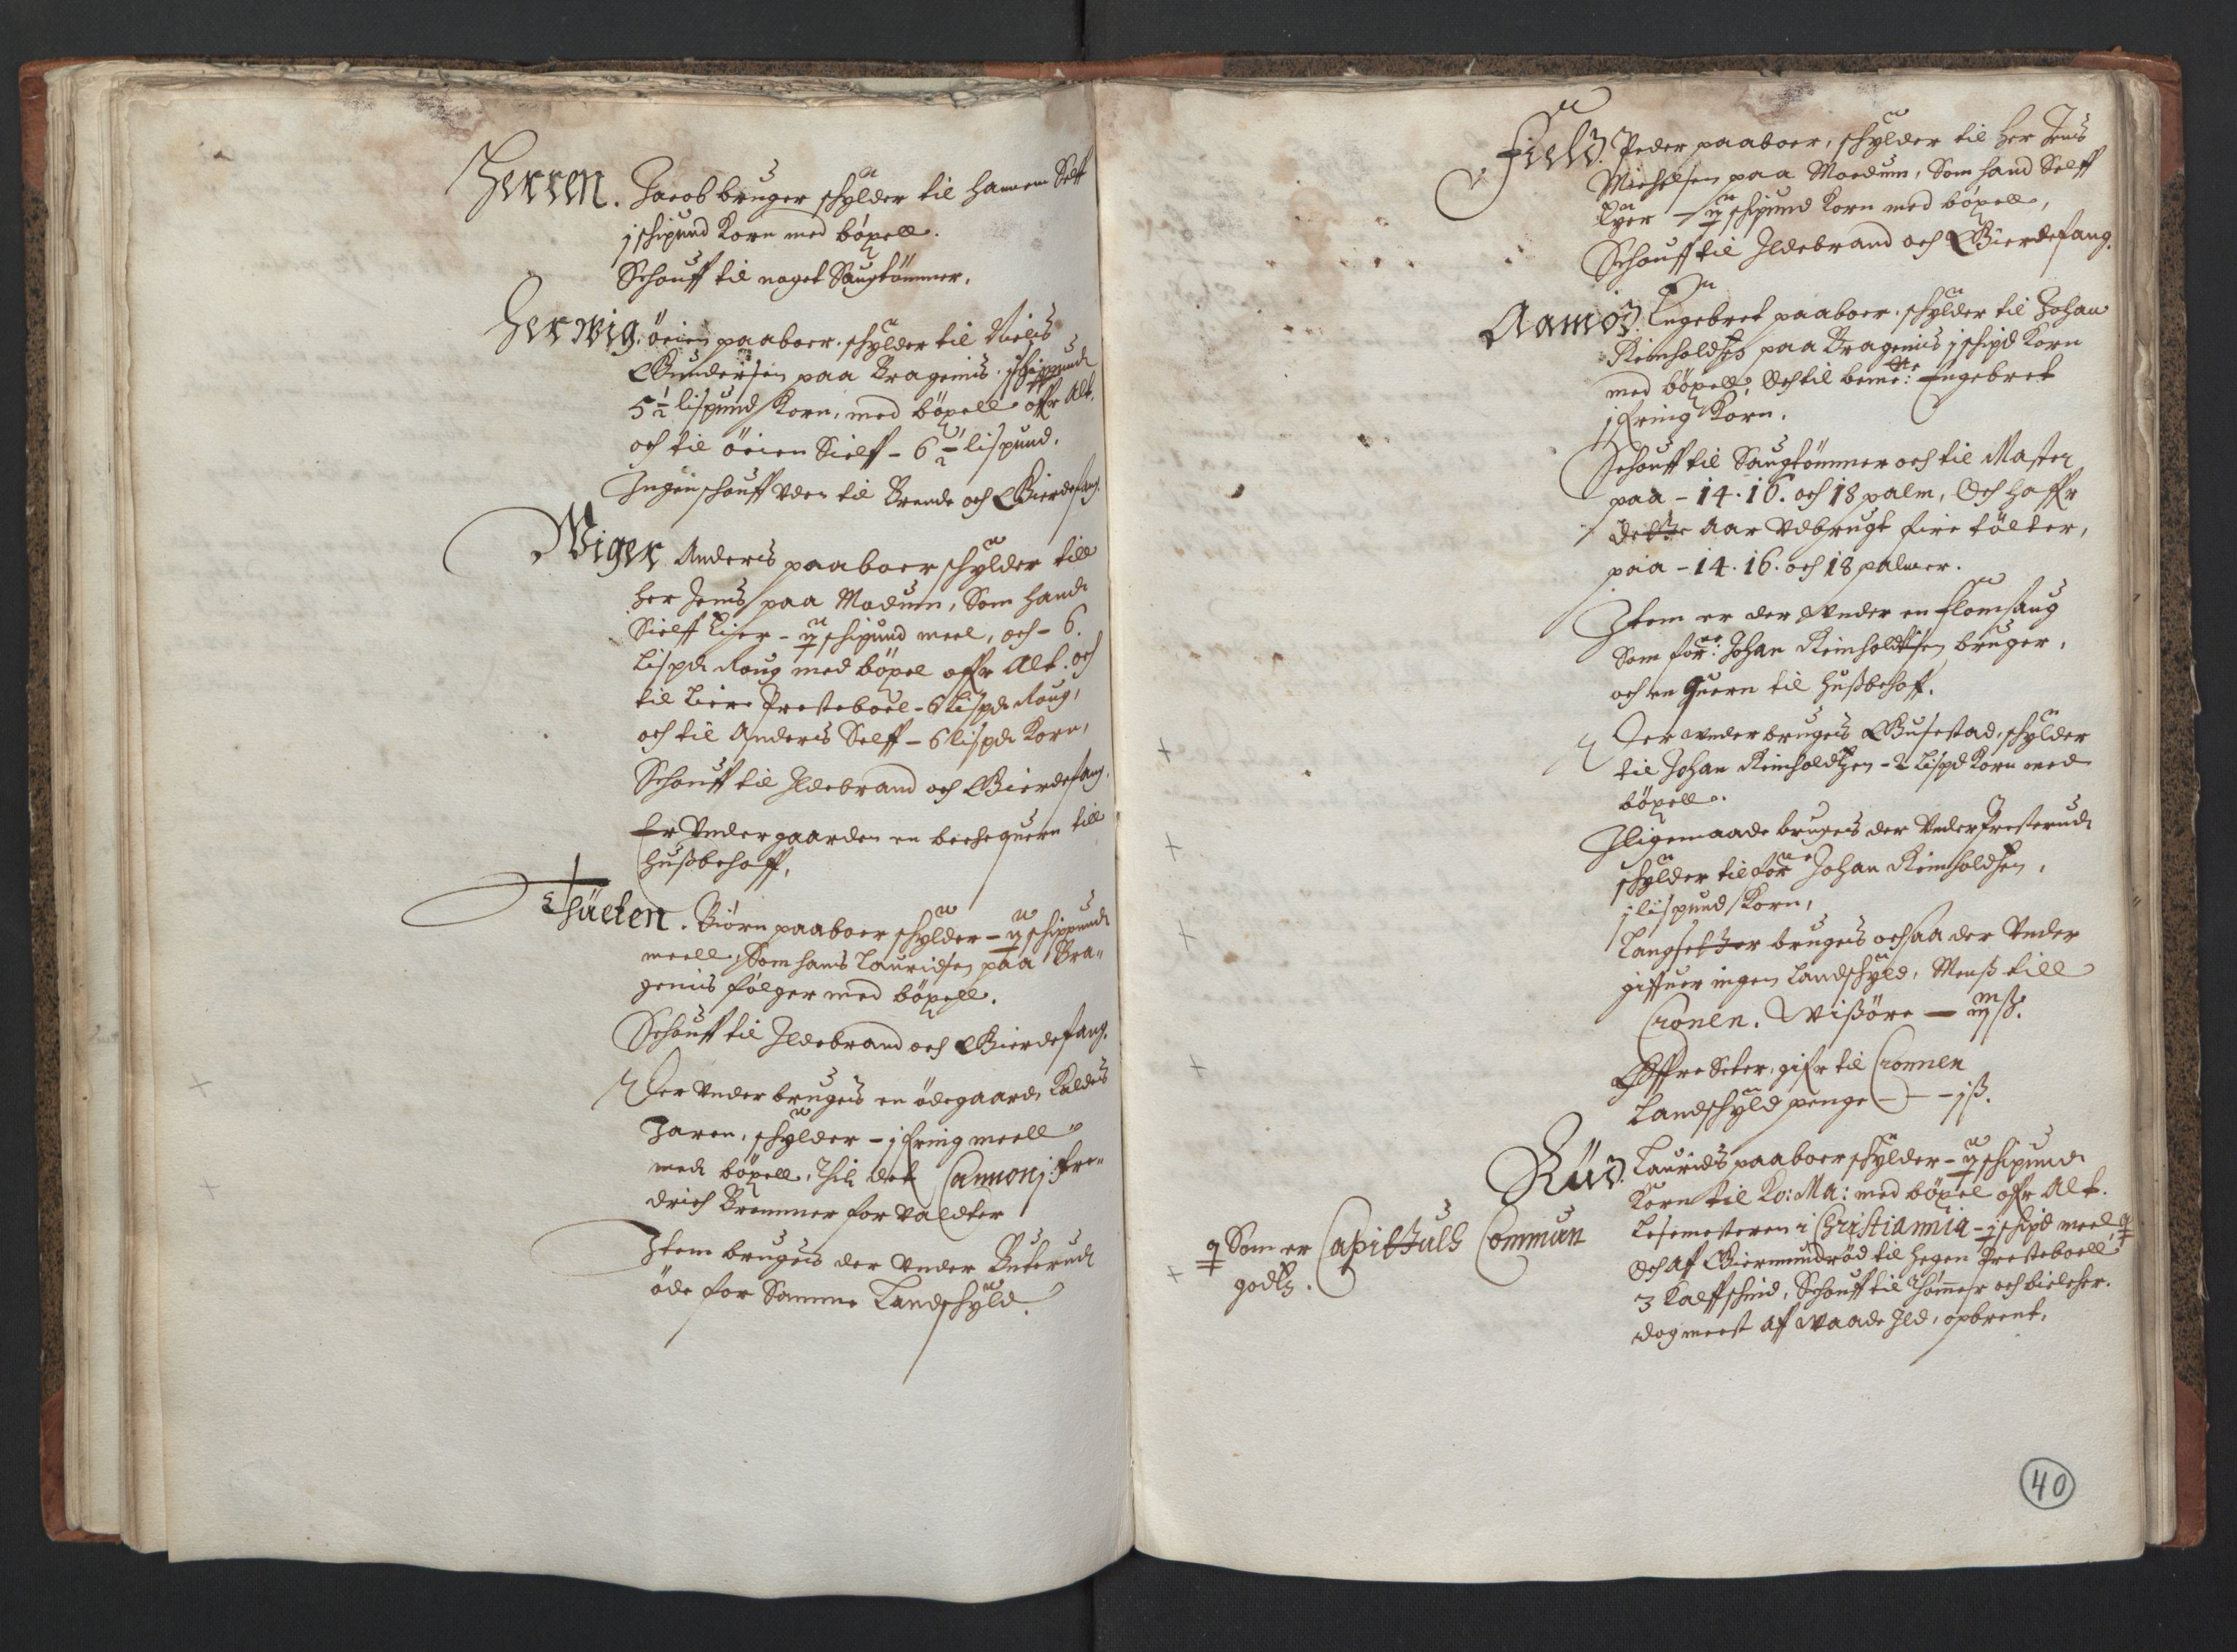 Herren. Jacob bruger schylder til hannem Selff
j schipund Korn med böxell.
Schouff til noget Saugtömmer.
Herwig. öeien paaboer. schylder til Nielis
Gundersen paa Bragenis. j schippund
5 ½ lispund Korn, med böxell offr Alt.
och til öeien Sielff - 6 ½ lispund.
Ingen schouff vden til Brende och Gierdefang.
Wiger Anderis paaboer schylder till
Her Jens paa Modum, Som hand
Sielff Eiger - ½ schipund meel, och - 6.
Lispd Roug med böxel offr Alt. och
til Liere Presteboel - 6 lispd Roug,
och til Anderis Selff - 6 lispd Korn,
Schouff til Ildebrand och Gierdefang.
Er Vnder gaarden en beckequern till
Hußbehoff,
Thueten. Biörn paaboer schylder - ½ schippund
meell, Som hans Lauridsen paa Bra-
genis fölger med böxell.
Schouff til Ildebrand och Gierdefang.
Der Vnder brugeis en ödegaard, Kaldes
Jaren, schylder - j fring meell
med böxell, Til det Cannonj Fre-
drich Bremmer for valdter
Item brugeis der vnder Buterud
öde for Samme Landschyld.
Field. Peder paaboer, schylder til Her Jens
Michelsen paa Moedum, Som hand Selff
Eyer - ½ schipund Korn med böxell,
Schouff til Ildebrand och Gierdefang.
Aamod. Engebret paaboer. schylder til Johan
Reinholdsen paa Bragenis j schipd Korn
med böxell, Och til bemte: Engebret
j fring Korn.
Schouff til Saugtömmer och til Master
paa - 14. 16. och 18 palm, Och haffr
dette Aar Vdbrugt fire tölter,
paa - 14. 16. och 18 palmer.
Item er der vnder en flomsaug
Som forne: Johan Reinholdtsen bruger,
och en Quern til Hußbehof.
Der vnder brugeis Gusestad, schylder
til Johan Reinholdtzen - 2 Lispd Korn med
böxell.
Iligemaade brugeis der Vnder Presterud
schylder til forne Johan Reinholdsen,
j lispund Korn,
Langsetter brugeis ochsaa der Vnder
giffuer ingen Landschyld, Menß till
Cronen. Wißöre — iij ß.
Öffre Seter, gifr til Cronnen
Landschyld penge — - j ß.
Rud. Laurids paaboer schylder - ½ schipund
Korn til Ko: Ma: med böxel offr Alt.
Lesemesteren i Christiannia - ½ schipd meel
Och Aff Giermundröd til Hegen Presteboell
3 Kalffschind, Schouff til Tömmer och bielcher.
dog meest aff waade Ild, opbrent.
Som er Capittuls Commun
godtz.
40